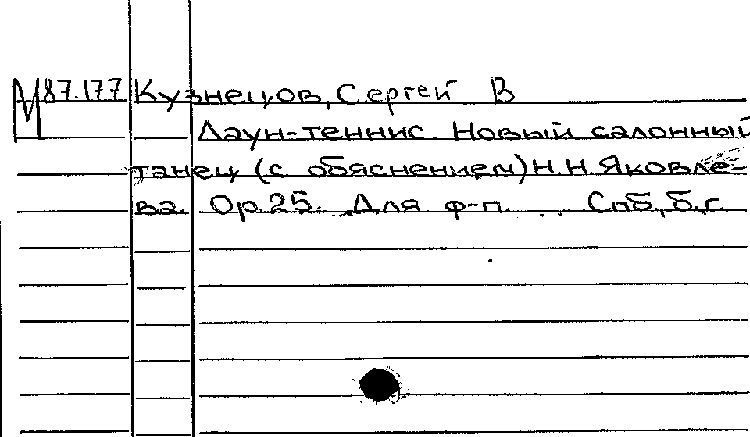 М87.177 Кузнецов, Сергей В
Лаун-теннис. Новый салонный
танец (с обяснением) Н.Н. Яковле-
ва. Op. 25. Для ф-п. Спб, б.г.